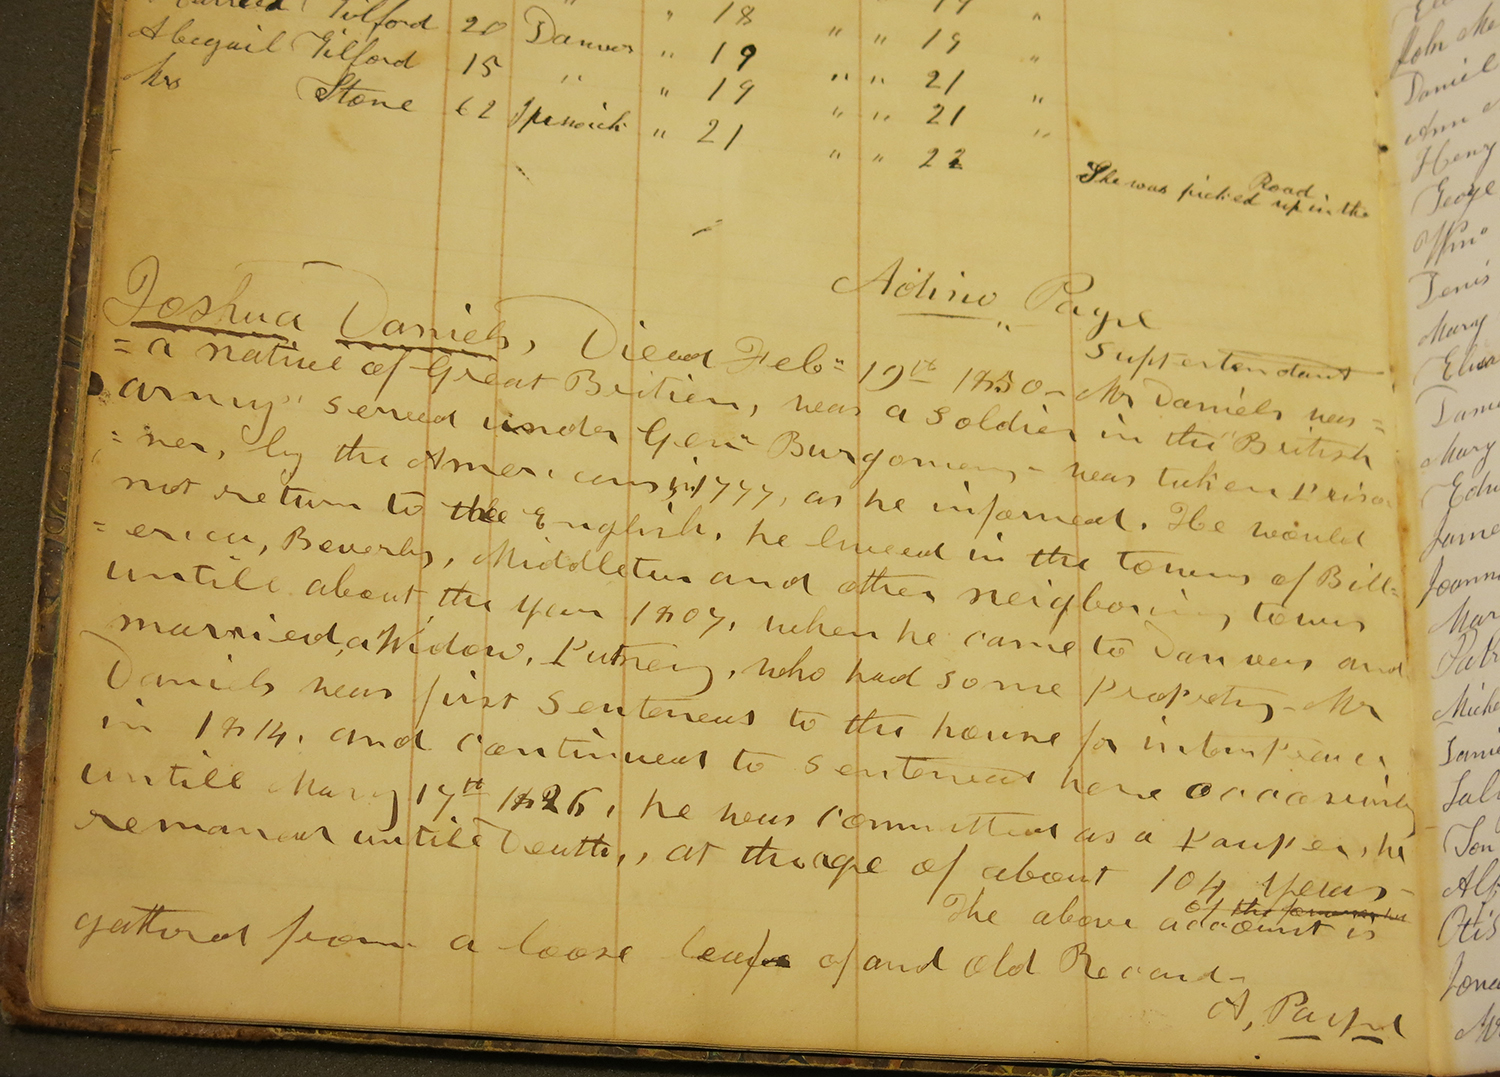 Gilford 20 " " 18 " " 19 "
Abegail Gilford 15 Danvers " 19 " " 19 "
Mrs Stone 62 " " 19 " " 21 "
Ipswich " 21 " " 21 "
" " 22
She was picked up in the Road
Adino Page
Suppertendant
Joshua Daniels, Died Feb 19th 1830 - Mr Daniels was =
= a native of Great Britien, was a soldier in the British
army served under Gen Burgoyney - was taken Prison
= ner, by the Americans in 1777, as he informed. He would
not return to the English. he liveed in the towns of Bill=
= erica, Beverly, Middleton and other neigboring towns
untill about the year 1807, when he came to Danvers and
married, a Widow, Putney, who had some property - Mr
Daniels was first sentenced to the house for intemprance
in 1814, and continued to sentenced here occasinly
untill 17th 1826, he was committed as a Pauper, he
remaned untill Death, at the age of about 104 years -
The above account is
gathred from a loose leafe of and old Record -
A, Page
John
Daniel
Ann
Henry
George
Wm
Denis
Mary
Mary
James
Joanna